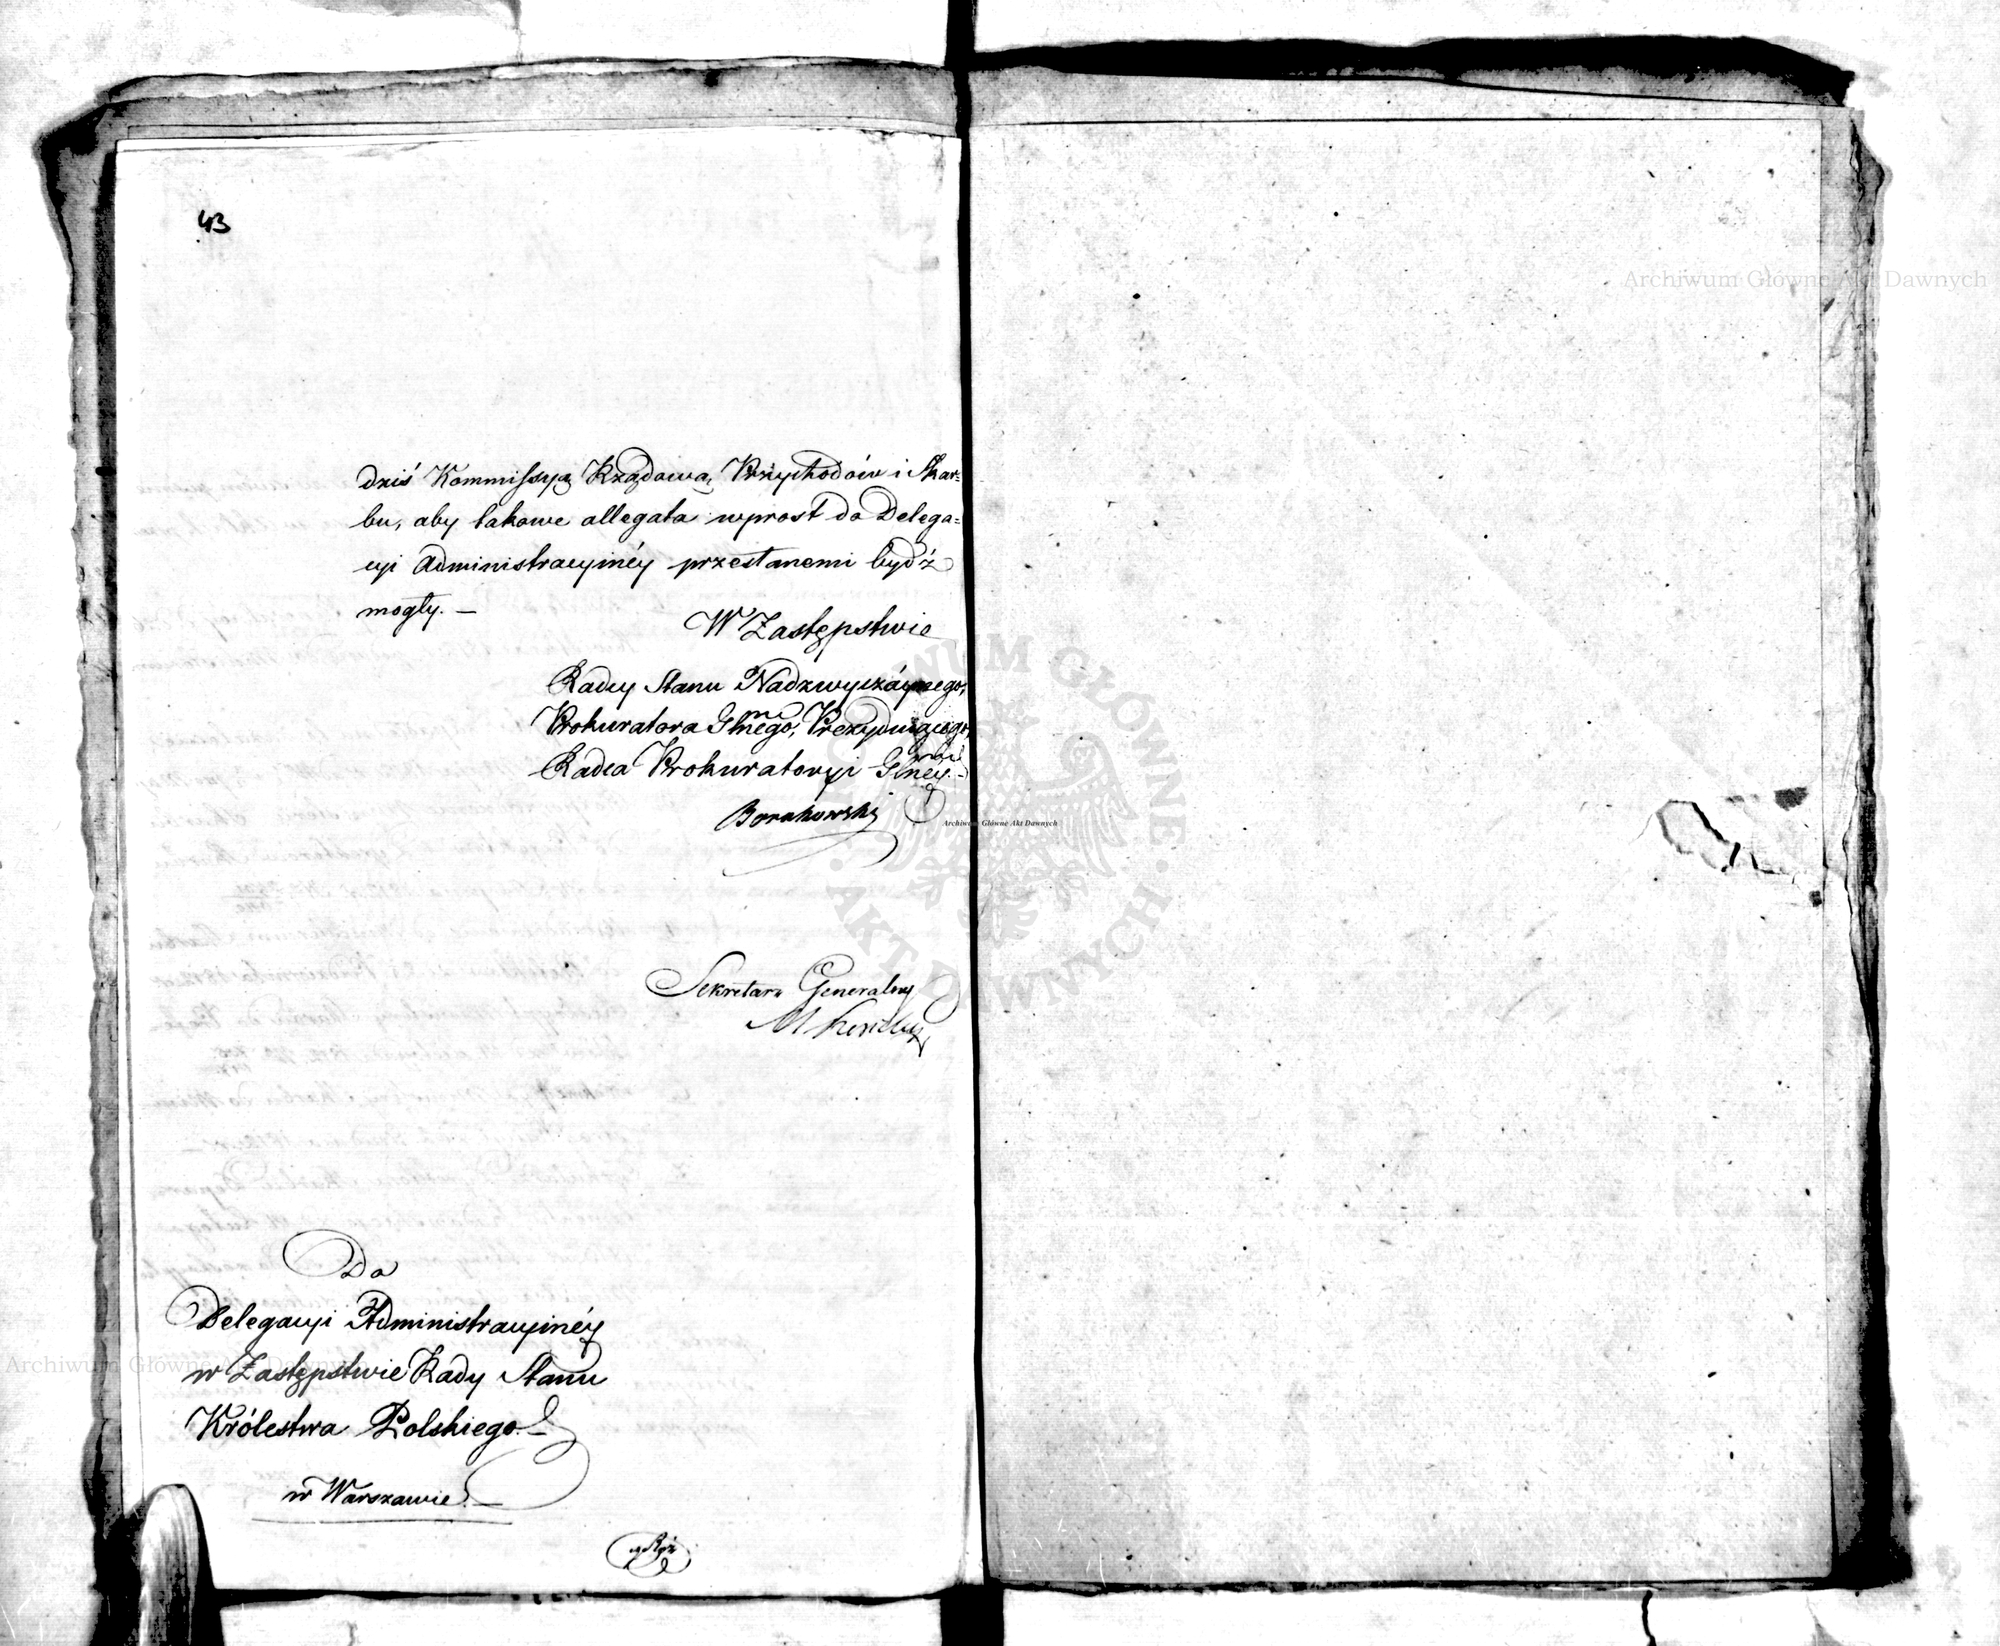 43
dziś Kommissyą Rządową Przychodów i Skar=
bu, aby takowe allegata wprost do Delega=
cyi Administracyinéy przesłanemi bydź
mogły. —
W Zastępstwie
Radcy Stanu Nadzwyczáynego,
Prokuratora Glnego, Prezyduiącego,
Radca Prokuratoryi Glnéy.
Sekretarz Generalny
Do
Delegacyi Administracyinéy
w Zastępstwie Rady Stanu
Królestwa Polskiego. —
w Warszawie. —
Archiwum Główne Akt Dawnych
Archiwum Główne Akt Dawnych
Archiwum Główne Akt Dawnych
ARCHIWUM GŁÓWNE · AKT DAWNYCH ·